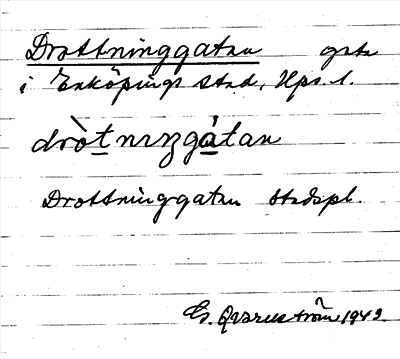 Drottninggatan gata
i Enköpings stad, Ups. l.
dròtnıŋgátan
Drottninggatan stadspl.
Es. Qvarnström 1942